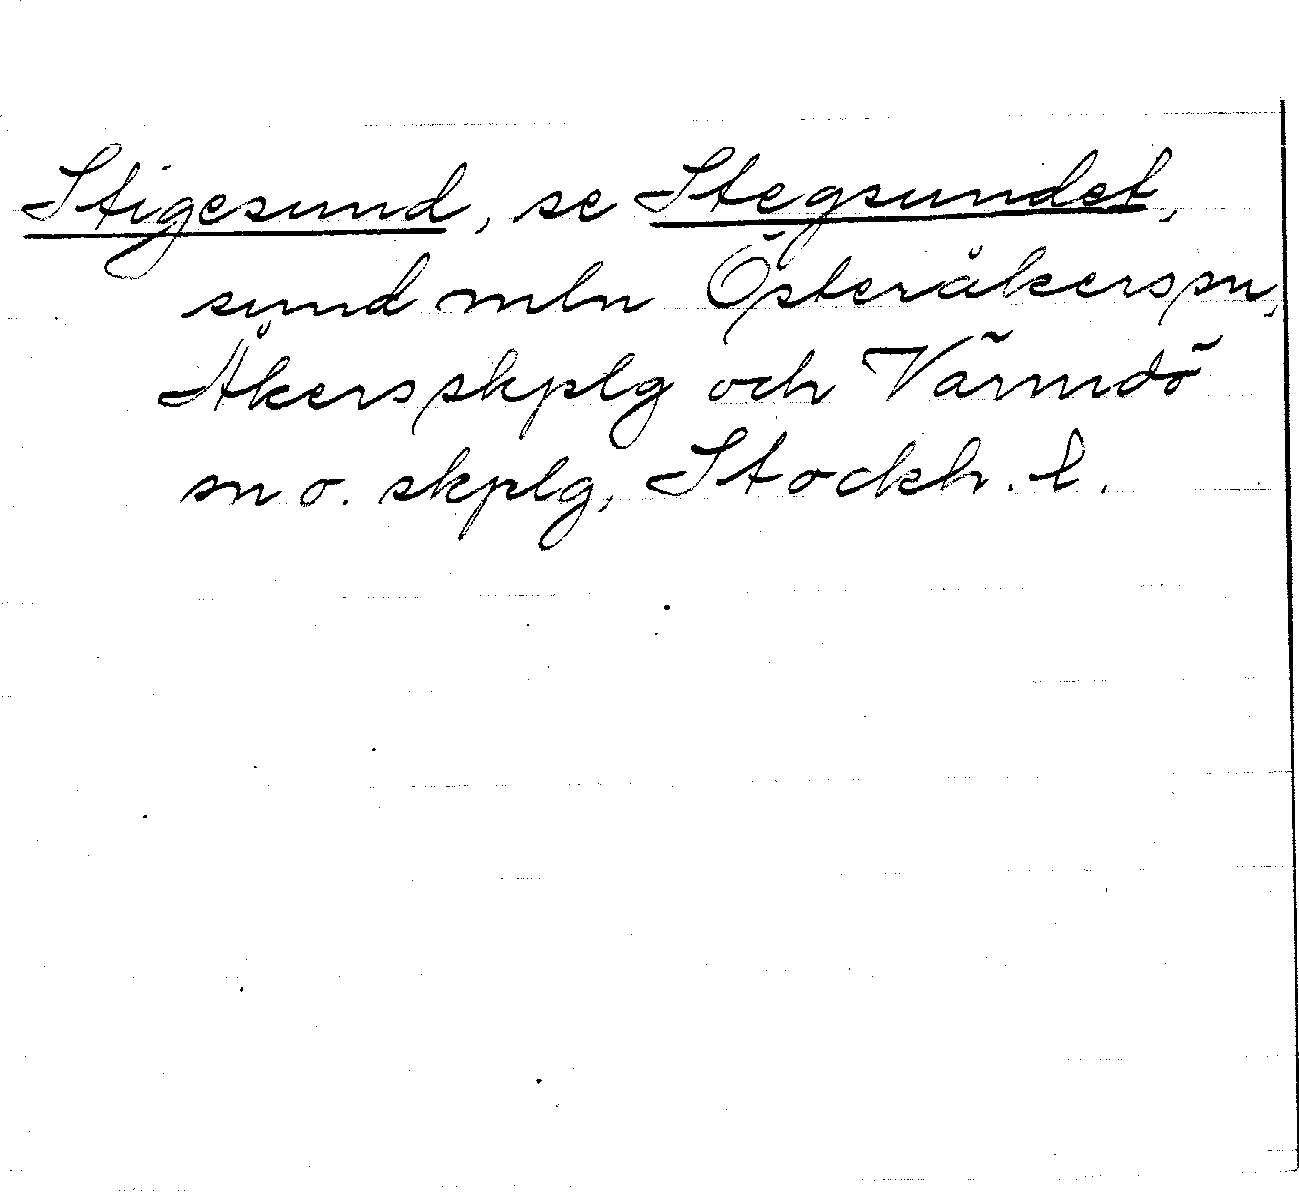 Stigesund, se Stegsundet,
sund mln Österåkers sn,
Åkers skplg och Värmdö
sn o. skplg, Stockh. l.